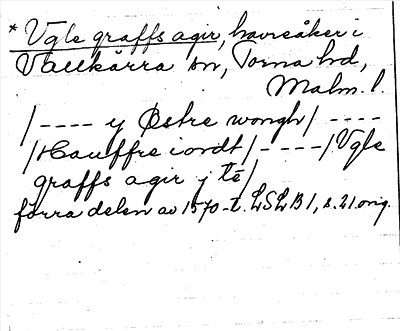 * Vgle graffs agir, havreåker i
Vallkärra sn, Torna hd,
Malm. l.
/---- y Østre wongh/ ----
/Hauffre iordt/-----/Vgle
graffs agir j tē/
förra delen av 1570-t. LSLB1, s. 21 orig.